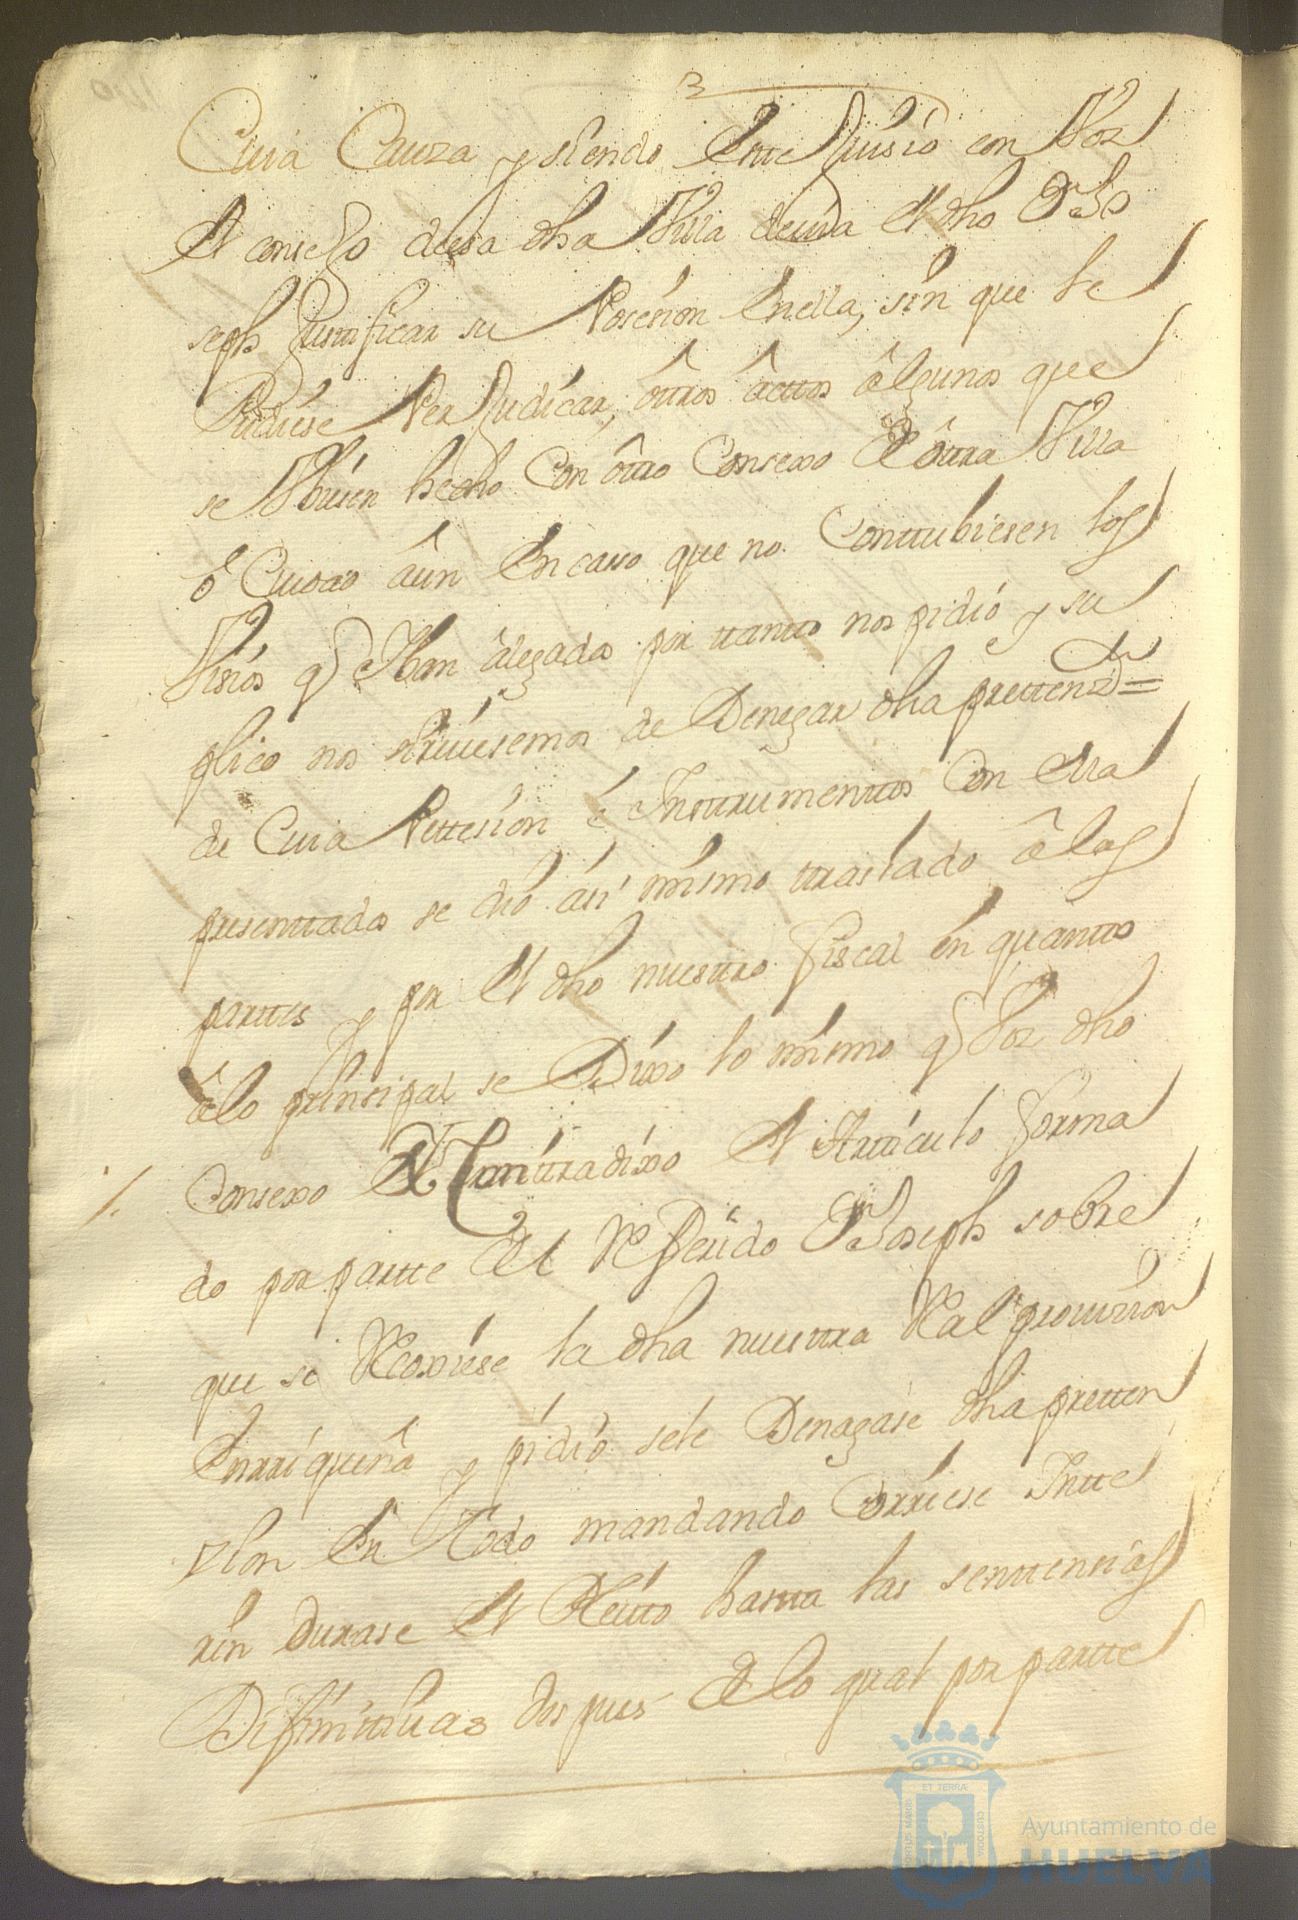 Cuia Cauza y siendo Este Juisio con Voz
el consejo de esa dha Villa deuia el dho Dn Jo
seph Justificar su Posesion Enella, sin que le
Pudiese Perjudicar, ôtros âcttos âlgunos que
se Vbiesen hecho Con ôtro Consexo de ôttra Villa
ô Ciudad âun En caso que no Conttubiesen los
Visios q se Iban âlegados por ttantto nos pidió y su
plico nos sirviesemos de Denegar dha prettenzn=
de Cuia Pettision é Insttrumenttos Con Ella
presenttados se dió ási mismo traslado â las
parttes y por el dho nuesttro fiscal en quantto
âlo prinsipal se Dixo lo mismo q Por dho
Consexo y Conttradixo el Artticulo forma
do por partte del Referido Dn Joseph sobre
que se Recoxiese la dha nuesttra Real provizion
Enrriqueña y pidió sele Denegase dha pretten
zion En Todo mandando Corriese Intte
rin Durase el Pleitto hastta las senttensias
Difinittiuas despues de lo qual por partte
Ayuntamiento de
HUELVA
ET TERRÆ
CUSTODIA
PORTUS MARIS